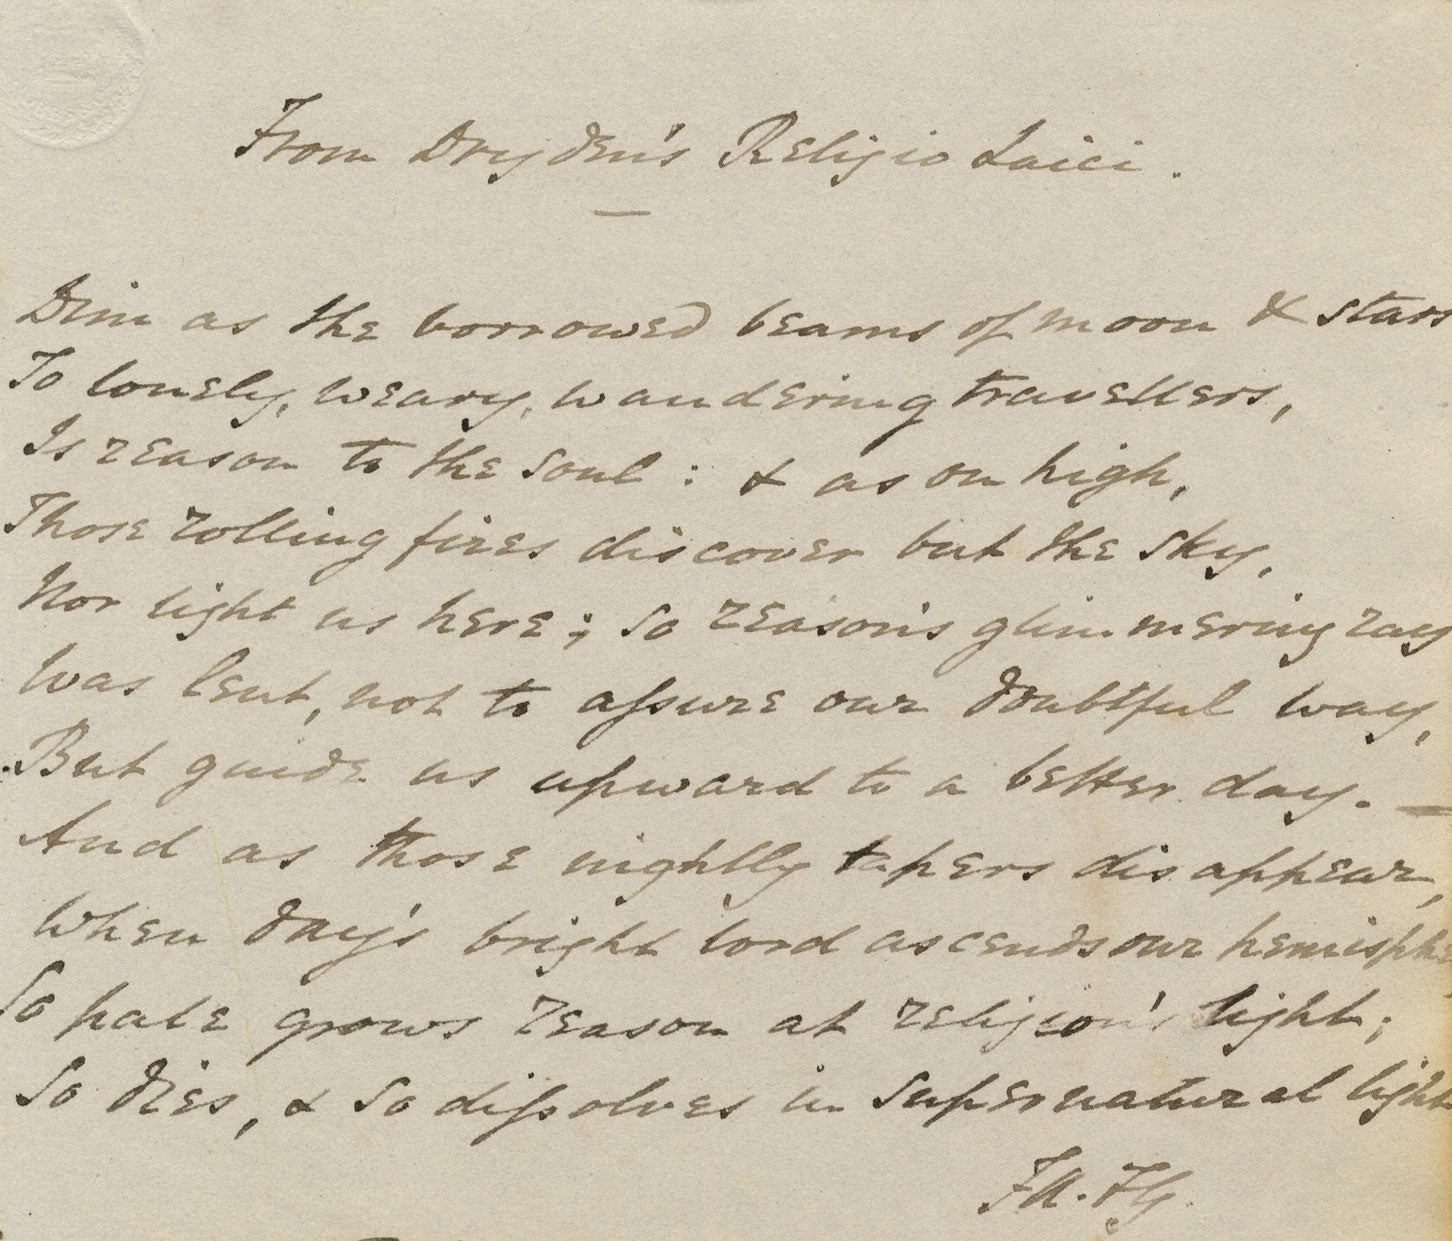 From Dryden's Religio Laici.
Dim as the borrowed beams of moon & stars
To lonely, weary, wandering travellers,
Is reason to the soul: & as on high,
Those rolling fires discover but the sky,
Nor light us here; so reason's glimmering ray
Was lent, not to aſsure our doubtful way,
But guide us upward to a better day. —
And as those nightly tapers disappear,
When day's bright lord ascends our hemisphe
So pale grows reason at religion's light;
So dies, & so diſsolves in supernatural light